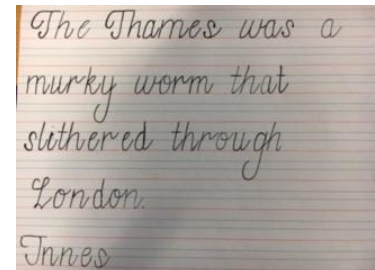 The Thames was a
murky worm that
slithered through
London.
Innes